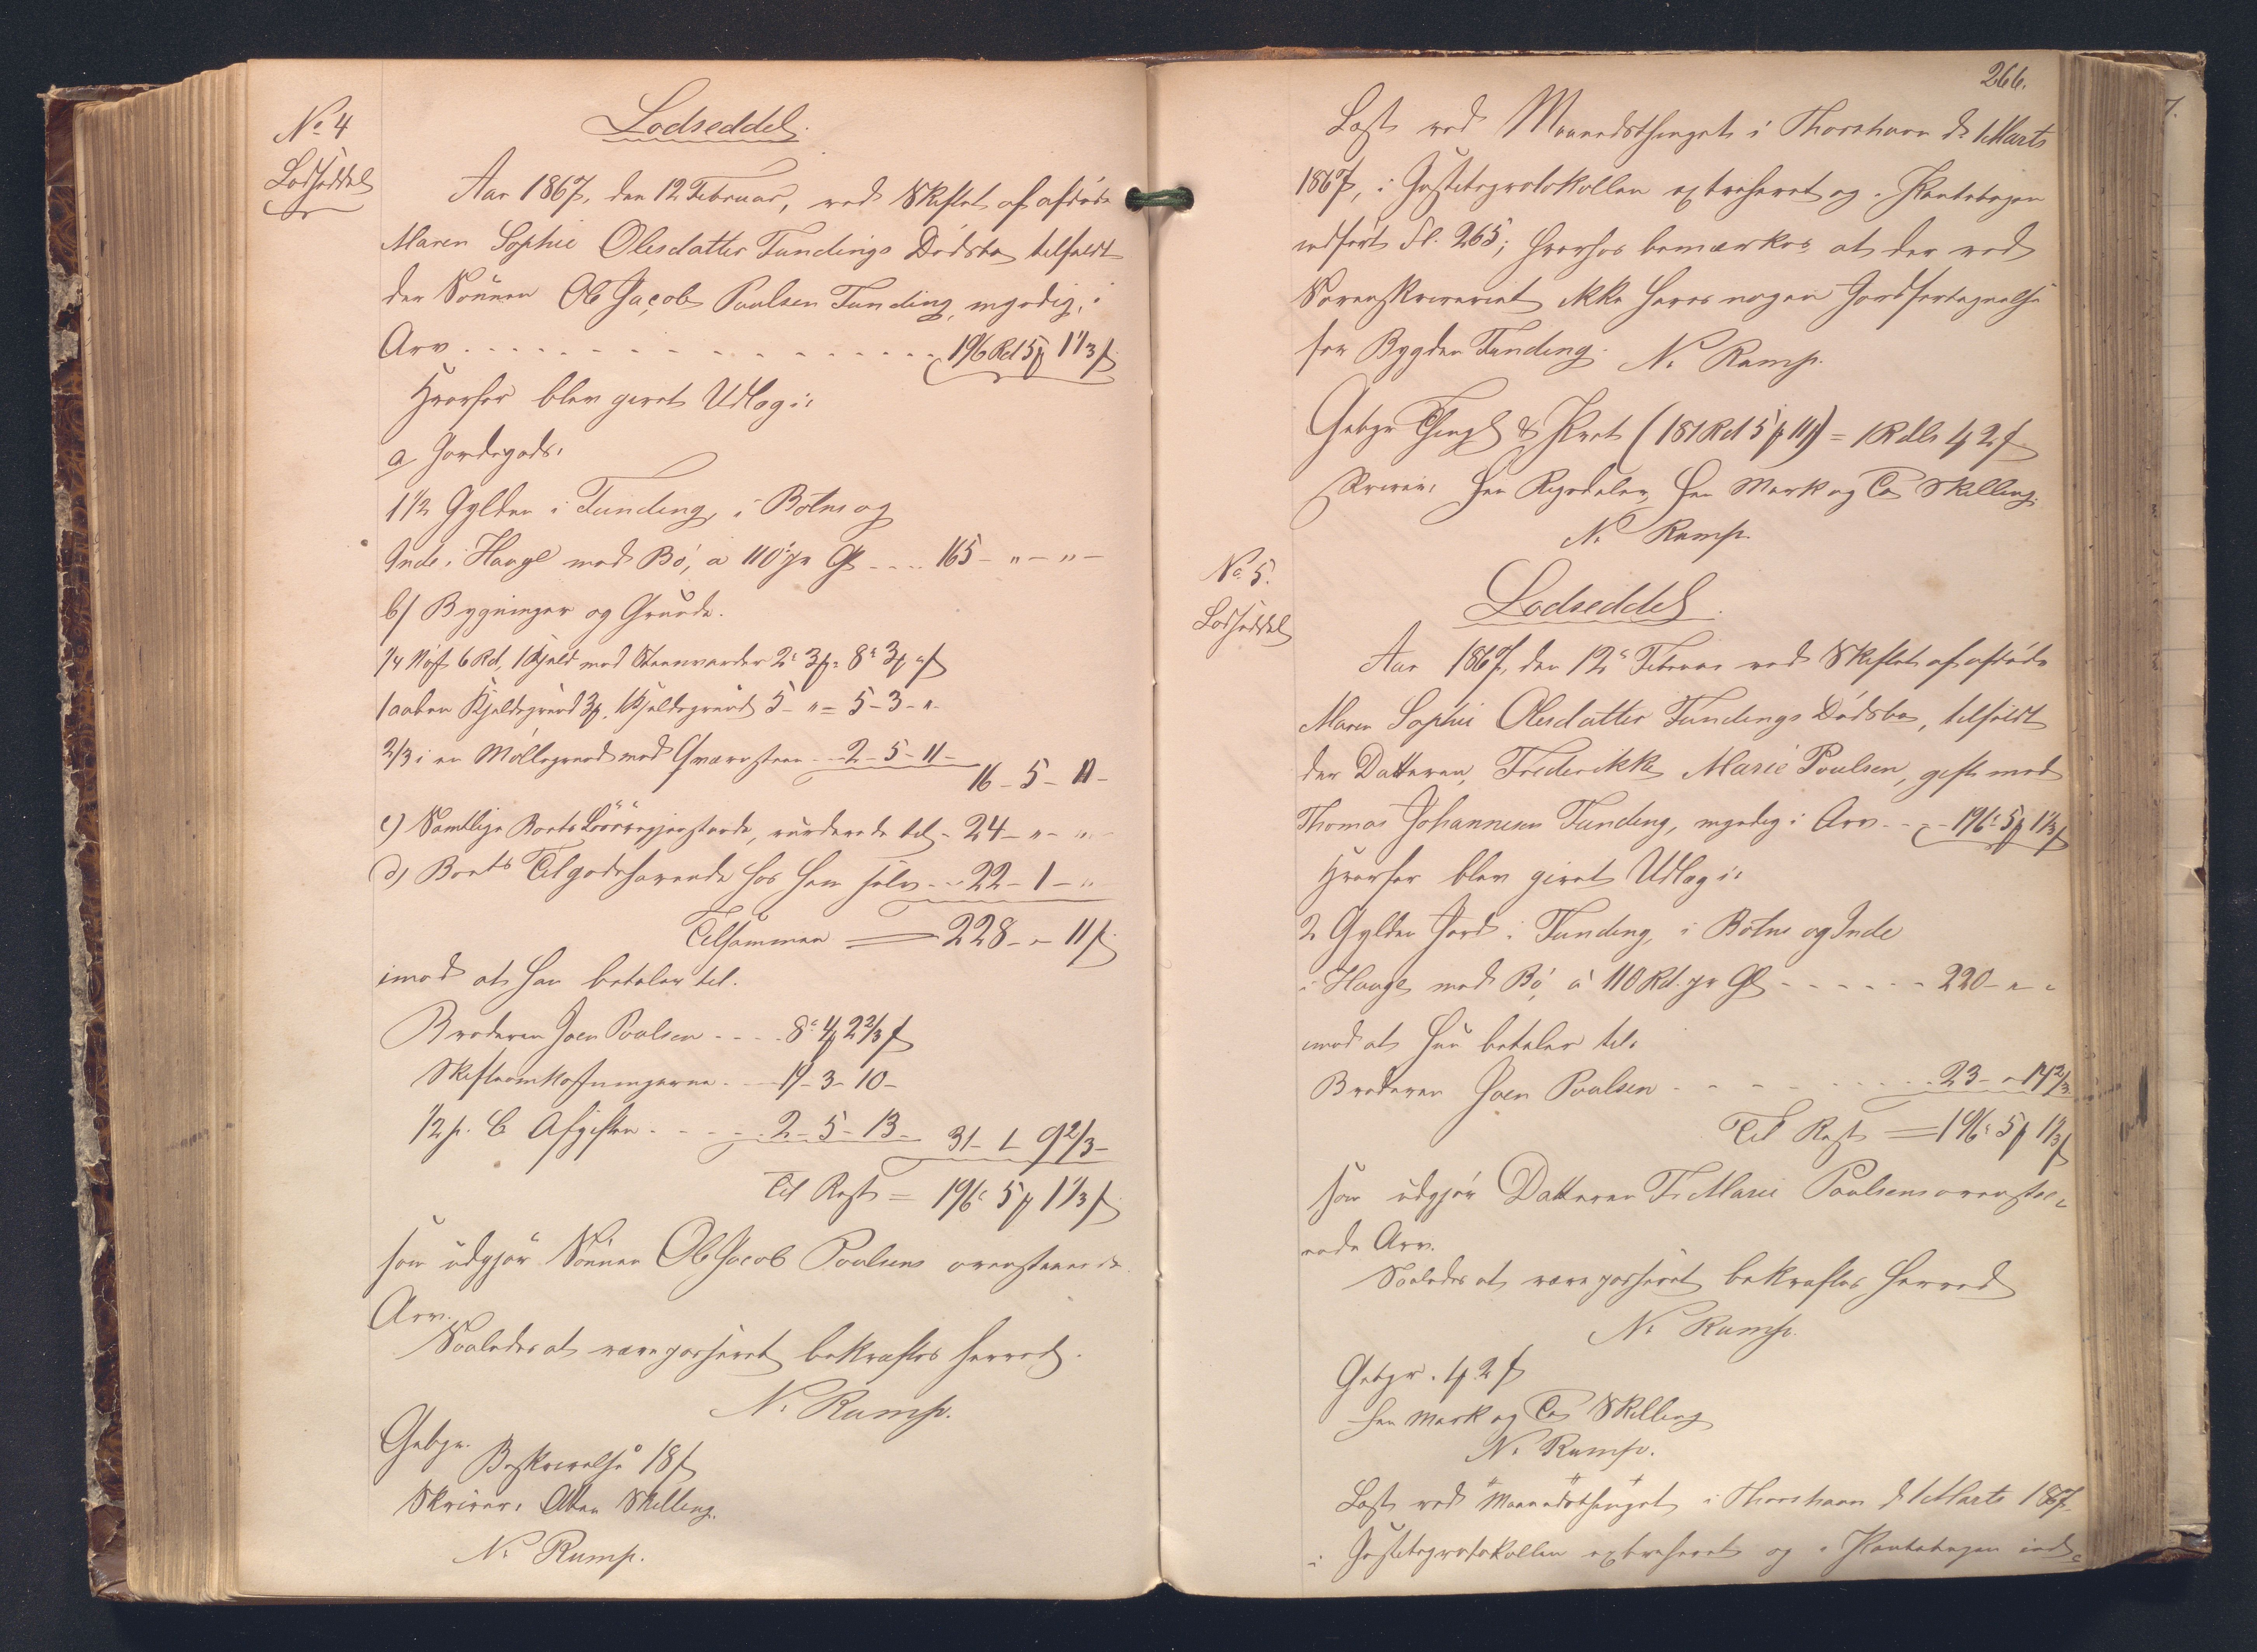 No 4
Lodseddel
Lodseddel.
Aar 1867, den 12 Februar, ved Skiftet af afdøde
Maren Sophie Olesdatter Fundings Dødsbo tilfaldt
der Sønnen Ole Jacob Poulsen Funding, myndig, i
Arv . . . . 196 Rd 5 ꝟ 1 1/3 ß
Hvorfor blev givet Udlæg i:
a Jordegods:
1 1/2 Gylden i Funding, i Botni og
Inde i HaugE med Bø, a 110 r pr Gl .... 165 - " - " -
b/ Bygninger og Grunde.
1/4 6 Rd, 1 Kjeld med Steenvarder 2 r 3 ꝟ = 8 r 3 ꝟ " ß
1 aaben Kjeldegrund 3 ꝟ, 1 Kjeldegrund 5 - " = 5 - 3 - " -
2/3 i en Møllegrund med Qværnsteen - - 2 - 5 - 11 -
16 - 5 - 11 -
c) Samtlige Boets Løsøregjenstande, vurderede til - 24 - " - " -
d) Boets Tilgodehavende hos ham selv - - 22 - 1 - "
Tilsammen = 228 - " - 11 ß
imod at han betaler til.
Broderen Joen Poulsen - - - - 8 r 4 ꝟ 2 2/3 ß
Skifteomkostningerne - - 19 - 3 - 10 -
1/2 p. C Afgiften - - - - 2 - 5 - 13 - 31 - 1 - 9 2/3 -
Til Rest = 196 r 5 ꝟ 1 1/3 ß
som udgjør Sønnen Ole Jacob Poulsens ovenstaaende
Arv.
Saaledes at være passeret bekræftes herved.
N. Rump.
Gebyr.
Beskrivelse 18 ß
Skriver: Atten Skilling.
N. Rump.
266.
Læst ved Maanedsthinget i Thorshavn d. 1 Marts
1867, i Justitsprotokollen extraheret og i Pantebogen
indført Fl. 265; hvorhos bemærkes, at der ved
Sorenskriveriet ikke haves nogen Jordfortegnelse
for Bygden Funding. N. Rump.
Gebyr Thingl & Prot (181 Rd 5 ꝟ 11 ß) = 1 Rdlr 4 2 ß
Skriver: Een Rigsdaler, Een Mark og To Skilling.
N. Rump.
No 5.
Lodseddel
Lodseddel.
Aar 1867, den 12 Februar ved Skiftet af afdøde
Maren Sophie Olesdatter Fundings Dødsbo, tilfaldt
der Datteren, Frederikke Marie Poulsen, gift med
Thomas Johannesen Funding, myndig i Arv - - - 196 r 5 ꝟ 1 1/3 ß
Hvorfor blev givet Udlæg i:
2 Gylden Jord i Funding, i Botni og Inde
i HaugE med Bø, à 110 Rd. pr Gl - - - - - - 220 - " - "
imod at hun betaler til:
Broderen Joen Poulsen - - - - - - 23 - " - 14 2/3
Til Rest = 196 r 5 ꝟ 1 1/3 ß
som udgjør Datteren F. Marie Poulsens ovenstaa-
ende Arv.
Saaledes at være passeret bekræftes herved
N. Rump.
Gebyr. 1 ꝟ 2 ß
Een Mark og To Skilling
N. Rump.
Læst ved Maanedsthinget i Thorshavn d 1 Marts 1867
i Justitsprotokollen extraheret og i Pantebogen ind-